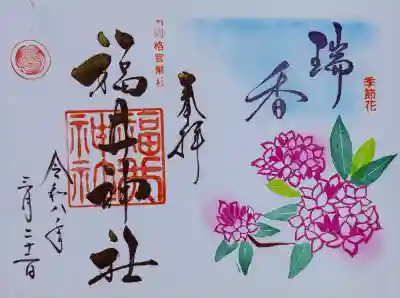 季節花
瑞香
奉拝
別格官幣社
福井神社
福井神社
令和八年
三月二十一日